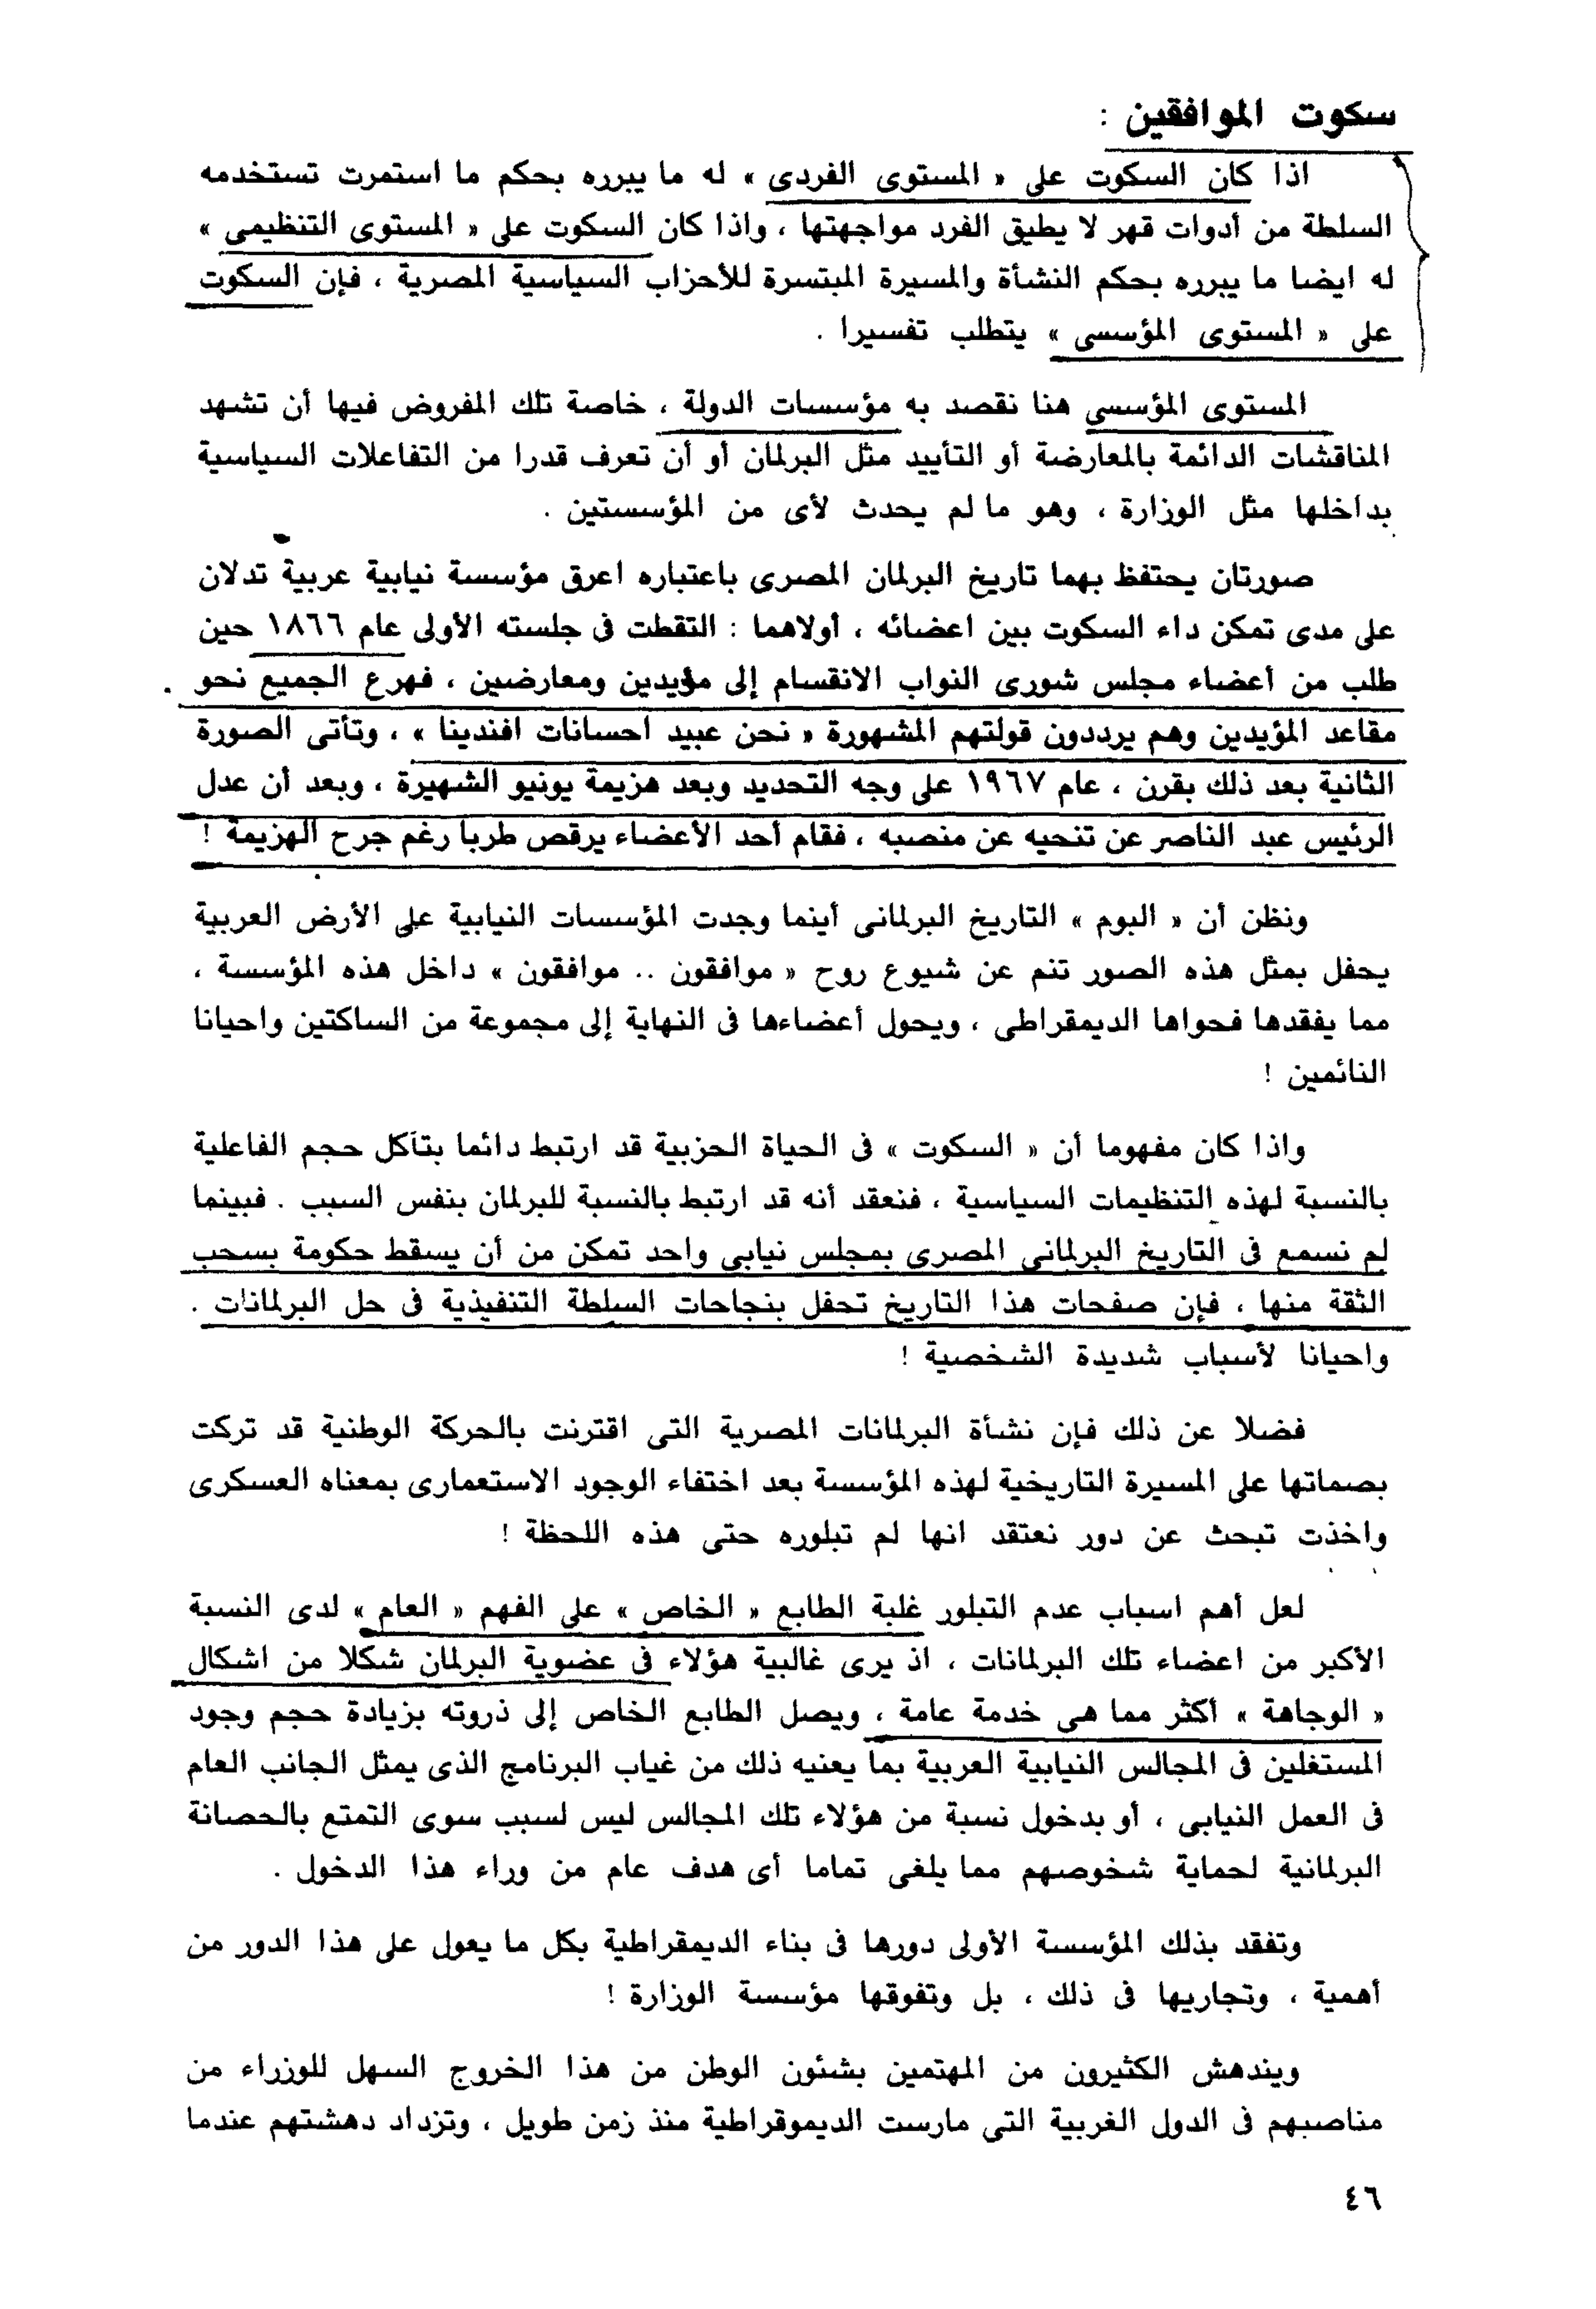 سكوت الموافقين :
اذا كان السكوت على « المستوى الفردى » له ما يبرره بحكم ما استمرت تستخدمه
السلطة من أدوات قهر لا يطيق الفرد مواجهتها ، واذا كان السكوت على « المستوى التنظيمى »
له ايضا ما يبرره بحكم النشأة والمسيرة المبتسرة للأحزاب السياسية المصرية ، فإن السكوت
على « المستوى المؤسسى » يتطلب تفسيرا .
المستوى المؤسسى هنا نقصد به مؤسسات الدولة ، خاصة تلك المفروض فيها أن تشهد
المناقشات الدائمة بالمعارضة أو التأييد مثل البرلمان أو أن تعرف قدرا من التفاعلات السياسية
بداخلها مثل الوزارة ، وهو ما لم يحدث لأى من المؤسستين .
صورتان يحتفظ بهما تاريخ البرلمان المصرى باعتباره اعرق مؤسسة نيابية عربية تدلان
على مدى تمكن داء السكوت بين اعضائه ، أولاهما : التقطت فى جلسته الأولى عام ١٨٦٦ حين
طلب من أعضاء مجلس شورى النواب الانقسام إلى مؤيدين ومعارضين ، فهرع الجميع نحو
مقاعد المؤيدين وهم يرددون قولتهم المشهورة « نحن عبيد احسانات افندينا » ، وتأتى الصورة
الثانية بعد ذلك بقرن ، عام ١٩٦٧ على وجه التحديد وبعد هزيمة يونيو الشهيرة ، وبعد أن عدل
الرئيس عبد الناصر عن تنحيه عن منصبه ، فقام أحد الأعضاء يرقص طربا رغم جرح الهزيمة !
ونظن أن « البوم » التاريخ البرلمانى أينما وجدت المؤسسات النيابية على الأرض العربية
يحفل بمثل هذه الصور تنم عن شيوع روح « موافقون .. موافقون » داخل هذه المؤسسة ،
مما يفقدها فحواها الديمقراطى ، ويحول أعضاءها فى النهاية إلى مجموعة من الساكتين واحيانا
النائمين !
واذا كان مفهوما أن « السكوت » فى الحياة الحزبية قد ارتبط دائما بتآكل حجم الفاعلية
بالنسبة لهذه التنظيمات السياسية ، فنعقد أنه قد ارتبط بالنسبة للبرلمان بنفس السبب . فبينما
لم نسمع فى التاريخ البرلمانى المصرى بمجلس نيابى واحد تمكن من أن يسقط حكومة بسحب
الثقة منها ، فإن صفحات هذا التاريخ تحفل بنجاحات السلطة التنفيذية فى حل البرلمانات .
واحيانا لأسباب شديدة الشخصية !
فضلا عن ذلك فإن نشأة البرلمانات المصرية التى اقترنت بالحركة الوطنية قد تركت
بصماتها على المسيرة التاريخية لهذه المؤسسة بعد اختفاء الوجود الاستعمارى بمعناه العسكرى
واخذت تبحث عن دور نعتقد انها لم تبلوره حتى هذه اللحظة !
لعل أهم اسباب عدم التبلور غلبة الطابع « الخاص » على الفهم « العام » لدى النسبة
الأكبر من اعضاء تلك البرلمانات ، اذ يرى غالبية هؤلاء فى عضوية البرلمان شكلا من اشكال
« الوجاهة » أكثر مما هى خدمة عامة ، ويصل الطابع الخاص إلى ذروته بزيادة حجم وجود
المستغلين فى المجالس النيابية العربية بما يعنيه ذلك من غياب البرنامج الذى يمثل الجانب العام
فى العمل النيابى ، أو بدخول نسبة من هؤلاء تلك المجالس ليس لسبب سوى التمتع بالحصانة
البرلمانية لحماية شخوصهم مما يلغى تماما أى هدف عام من وراء هذا الدخول .
وتفقد بذلك المؤسسة الأولى دورها فى بناء الديمقراطية بكل ما يعول على هذا الدور من
أهمية ، وتجاريها فى ذلك ، بل وتفوقها مؤسسة الوزارة !
ويندهش الكثيرون من المهتمين بشئون الوطن من هذا الخروج السهل للوزراء من
مناصبهم فى الدول الغربية التى مارست الديموقراطية منذ زمن طويل ، وتزداد دهشتهم عندما
٤٦